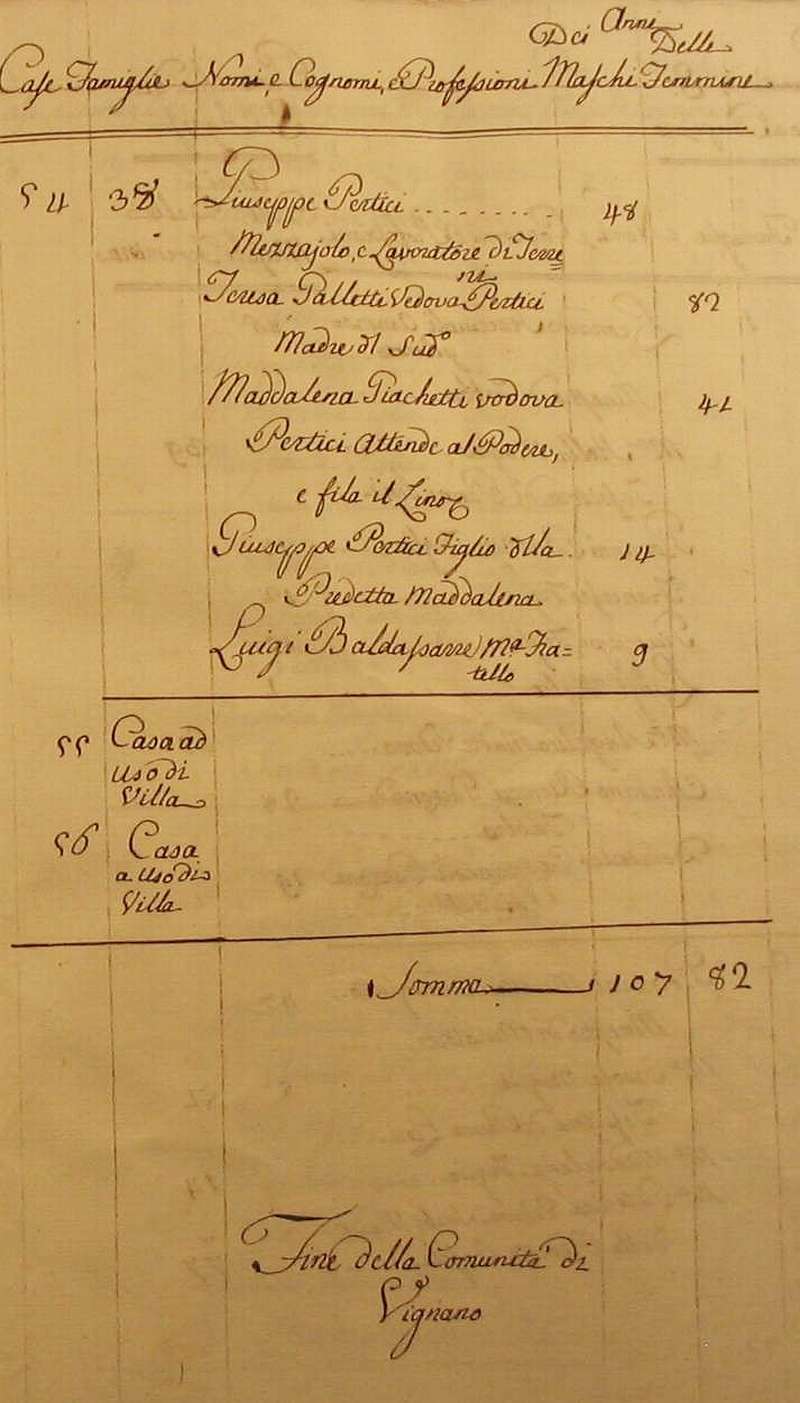 Dei Anni Delle
Case Famiglie Nomi, e Cognomi, e Professioni Maschi Femmine
54 38 Giuseppe Pertici . . . . . . . . . 48
Mezzajolo, e Lavoratore di Terre
ni
Teresa Galletti Vedova Pertici 82
Madre dl Sudo
Maddalena Giachetti vedova 41
Pertici Attende al Podere,
e fila il Lino
Giuseppe Pertici Figlio dlla 14
Predetta Maddalena
Luigi Baldassarre Mo Fra= 9
tello
55 Casa ad
uso di
Villa
56 Casa
a uso di
Villa
Somma 107 82
Fine della Comunità di
Vignano